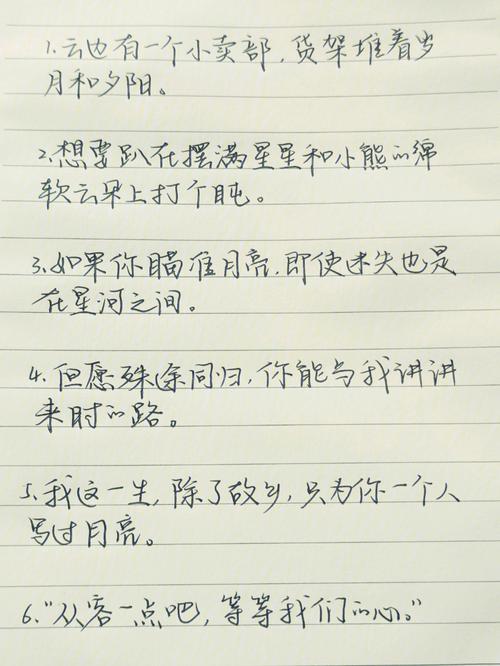 1.云也有一个小卖部，货架堆着岁
月和夕阳。
2.想要趴在摆满星星和小熊的绵
软云朵上打个盹。
3.如果你瞄准月亮，即使迷失也是
在星河之间。
4.但愿殊途同归，你能与我讲讲
来时的路。
5.我这一生，除了故乡，只为你一个人
写过月亮。
6.“从容一点吧，等等我们的心。”